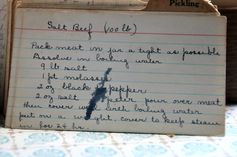 Pickling
Salt Beef (100 lb)
Pack meat in jar a tight as possible
Dissolve in boiling water
9 lb salt
1 pt molasses
2 oz black pepper
2 oz salt pour over meat
then cover with boiling water
put on a weight, cover to keep steam
in for 24 hr.